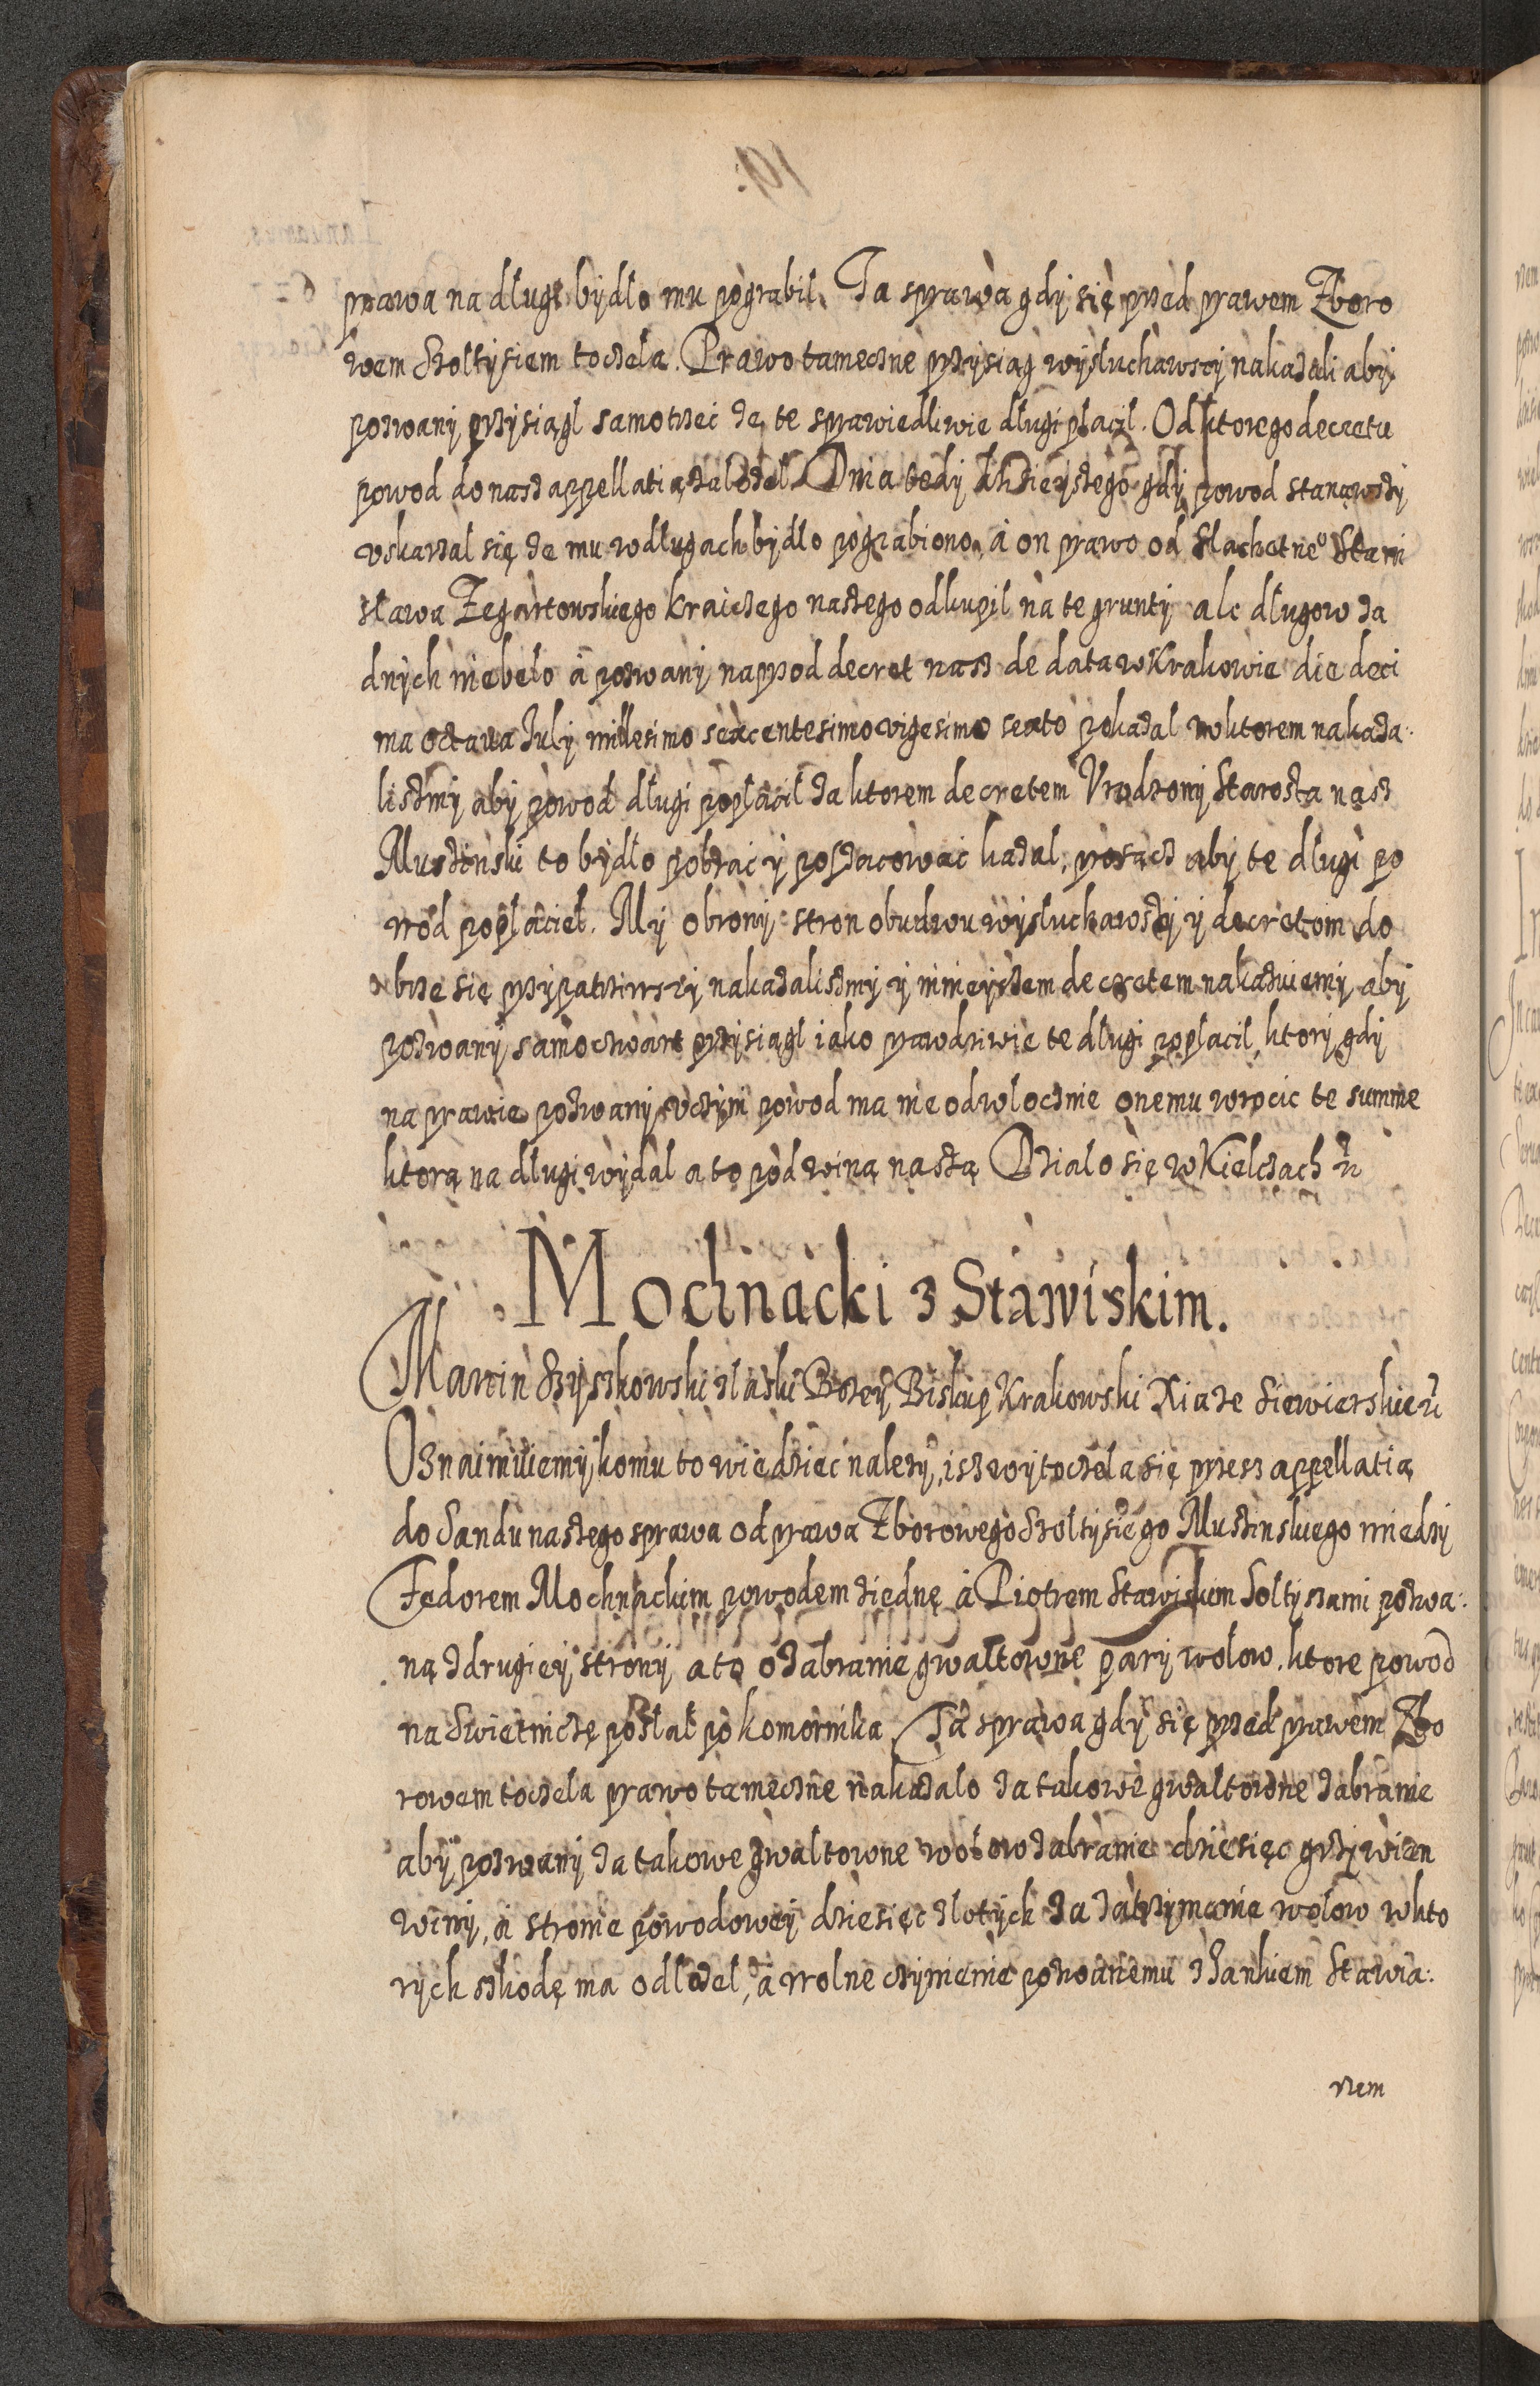 prawa na długi bydło mu pograbil. Ta sprawa gdy się przed prawem Zboro
wem Szołtysiem toczela. Prawo tameczne przysiąg wysłuchawszy nakazali aby
pozwany przysiągl samotrzec ze te sprawiedliwie długi płacil. Od ktorego decretu
powod do nasz appellatią założel. Dnia tedy dzisieyszego gdy powod stanąwszy
uskarzał się że mu w długach bydło pograbiono, á on prawo od Slachetneo Stani
sława Zegartowskiego kraiczego naszego odkupil na te grunty ale długow za
dnych niebeło á pozwany naprzod decret nasz de data w Krakowie die deci
ma octaua July millesimo sexcentesimo vigesimo sexto pokazal w ktorem nakaza:
lismy aby powod długi popłacil za ktorem decretem Vrodzony Starosta nasz
Muszinski to bydło pobrać y poszacować kazal, prosząc aby te długi po
wod popłaciel. My obrony stron obudwu wysłuchawszy y decretom do
brze się przypatrziwszy nakazalismy y ninieyszem decretem nakazuiemy aby
pozwany samoczwart przysiągl iako prawdziwie te długi popłacil, ktory gdy
na prawie pozwany uczyni powod ma nieodwłocznie onemu wrocic te summe
ktorą na długi wydal a to pod winą naszą Działo się w Kielcach &c
Mochnacki z Stawiskim.
Martin Szyszkowski z łaski Bozey Biskup Krakowski Xiaże Siewierskie &c
Oznaimuiemy komu to wiedzieć nalezy, isz wytoczela się przesz appellatią
do Sandu naszego sprawa od prawa Zborowego Szołtysiego Muszinskiego miedzy
Fedorem Mochnackim powodem z iednę á Piotrem Stawiskim Sołtyszami pozwa:
ną z drugiey strony a to o zabranie gwałtowne pary wołow, ktore powod
na Swietniczę posłał po komornika, Ta sprawa gdy się przed prawem Zbo
rowem toczela prawo tameczne nakazalo za takowe gwałtowne zabranie
aby pozwany za takowe gwałtowne wołow zabranie dziesięc grzywien
winy, á stronie powodowey dziesięc złotych za zatrzymanie wołow w kto
rych szkodę ma odłożeł, á wolne czynienie pozwanemu z Jankiem Stawia:
rzem